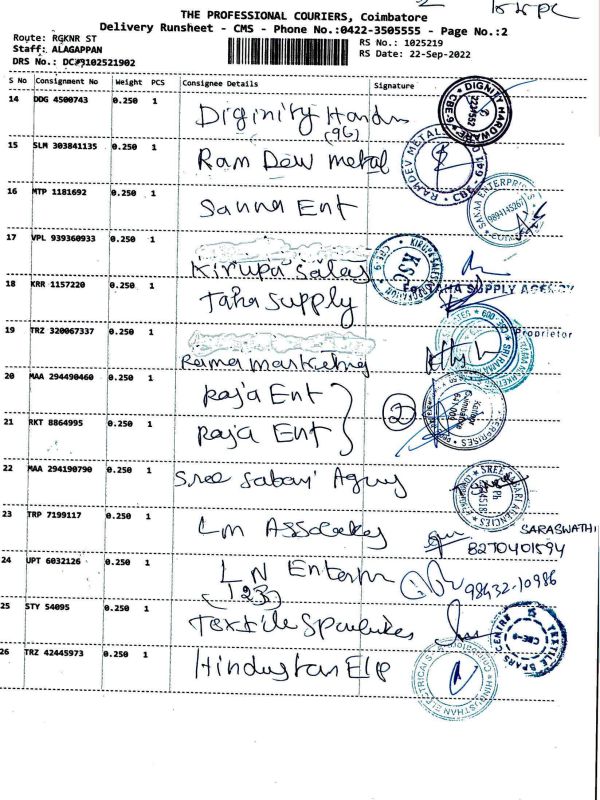 THE PROFESSIONAL COURIERS, Coimbatore
Delivery Runsheet - CMS - Phone No.:0422-3505555 - Page No.:2
Route: RGKNR ST
Staff: ALAGAPPAN
DRS No.:
RS No.: 1025219
RS Date: 22-Sep-2022
S No Consignment No Weight PCS Consignee Details Signature
14 DDG 4500743 0.250 1 Diginity
(96)
DIGNITY HARDWARE CBE-6
15 SLM 303841135 0.250 1 Ram Dew metal
RAMDEV METAL CBE-641
16 MTP 1181692 0.250 1 Sanna Ent
SAKAA ENTERPRISES
9894145267
17 VPL 939360933 0.250 1
Kirupa Sales
KIRUPA SALES CORPORATION CBE-9
KSC
18 KRR 1157220 0.250 1 Taha Supply
For TAHA SUPPLY AGENCY
Proprietor
19 TRZ 320067337 0.250 1
Rama
SRI RAMA CBE-009
20 MAA 294490460 0.250 1 Raja Ent
21 RKT 8864995 0.250 1 Raja Ent
2
22 MAA 294190790 0.250 1 Sree Sabari
SREE SABARI AGENCIES
23 TRP 7199117 0.250 1 LM
SARASWATHI
8270401594
24 UPT 6032126 0.250 1 LN
(123)
98432-10986
25 STY 54095 0.250 1 Textile
TEXTILE SPARS CENTRE CBE-9
26 TRZ 42445973 0.250 1 Hindustan Elp
HINDUSTHAN ELECTRICALS